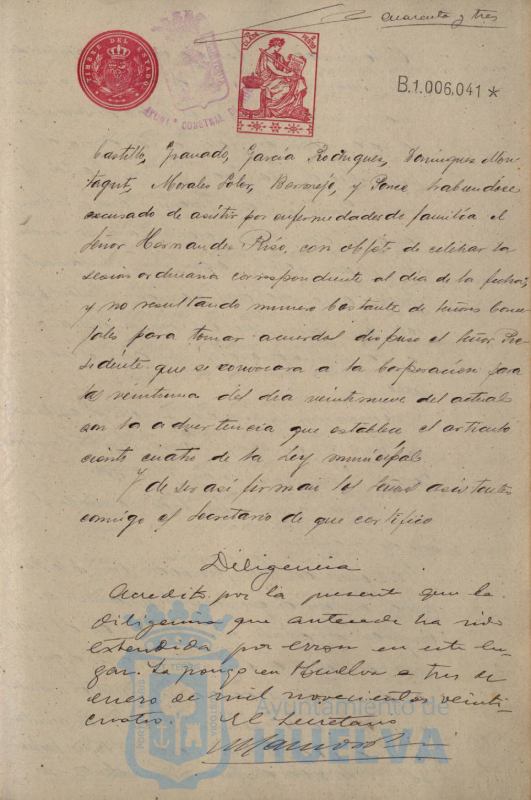 cuarenta y tres
TIMBRE DEL ESTADO
AYUNT° CONSTNAL
CLASE
B.1.006.041 *
Castillo, Granado, García Rodriguez, Dominguez Mon-
tagut, Morales Soler, Bermejo, y Ponce habiendose
excusado de asistir por enfermedades de familia el
Señor Hernandez Riso, con objeto de celebrar la
sesion ordinaria correspondiente al dia de la fecha;
y no resultando numero bastante de Señores Conce-
jales para tomar acuerdos dispuso el Señor Pre-
sidente que se convocara a la Corporacion para
las veintiuna del dia veintinueve del actual
con la advertencia que establece el articulo
ciento cuatro de la Ley municipal.
Y de ser asi firman los Señores asistentes
conmigo el Secretario de que certifico
Diligencia
Acredito por la presente que la
diligencia que antecede ha sido
extendida por error en este lu-
gar. La pongo en Huelva a tres de
enero de mil novecientos veinti-
cuatro. El Secretario
Ayuntamiento de
HUELVA